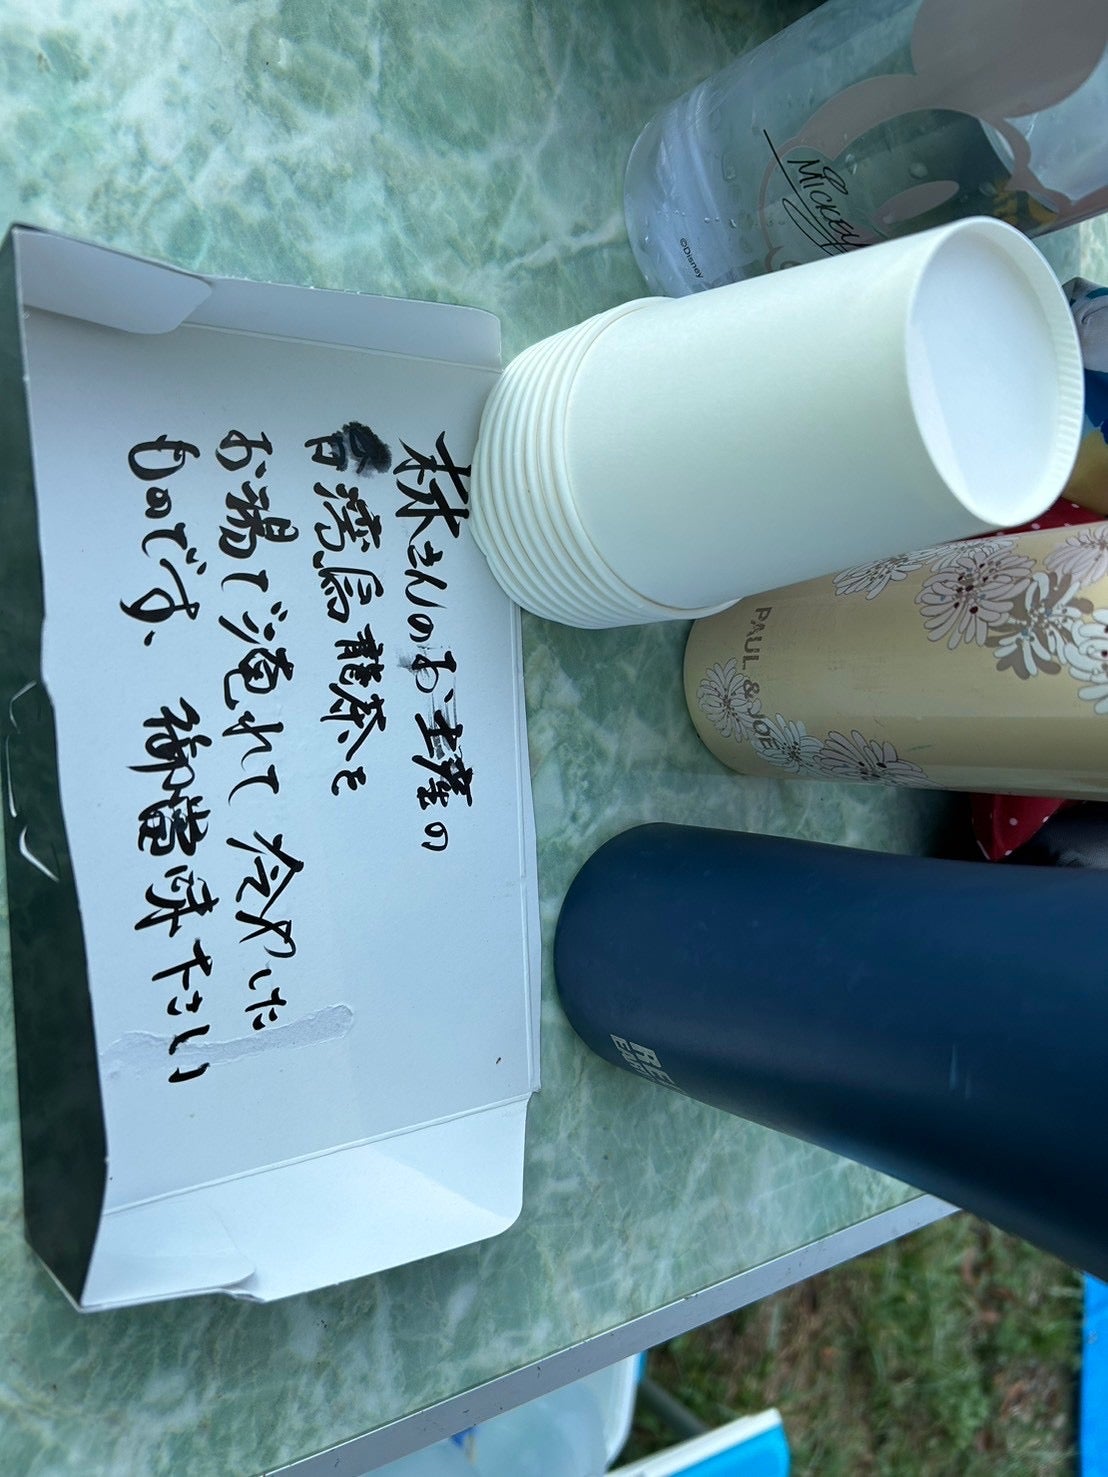 森さんのお土産の
台湾烏龍茶を
お湯で淹れて 冷やした
ものです、 御賞味下さい
MICKEY
©Disney
PAUL & JOE